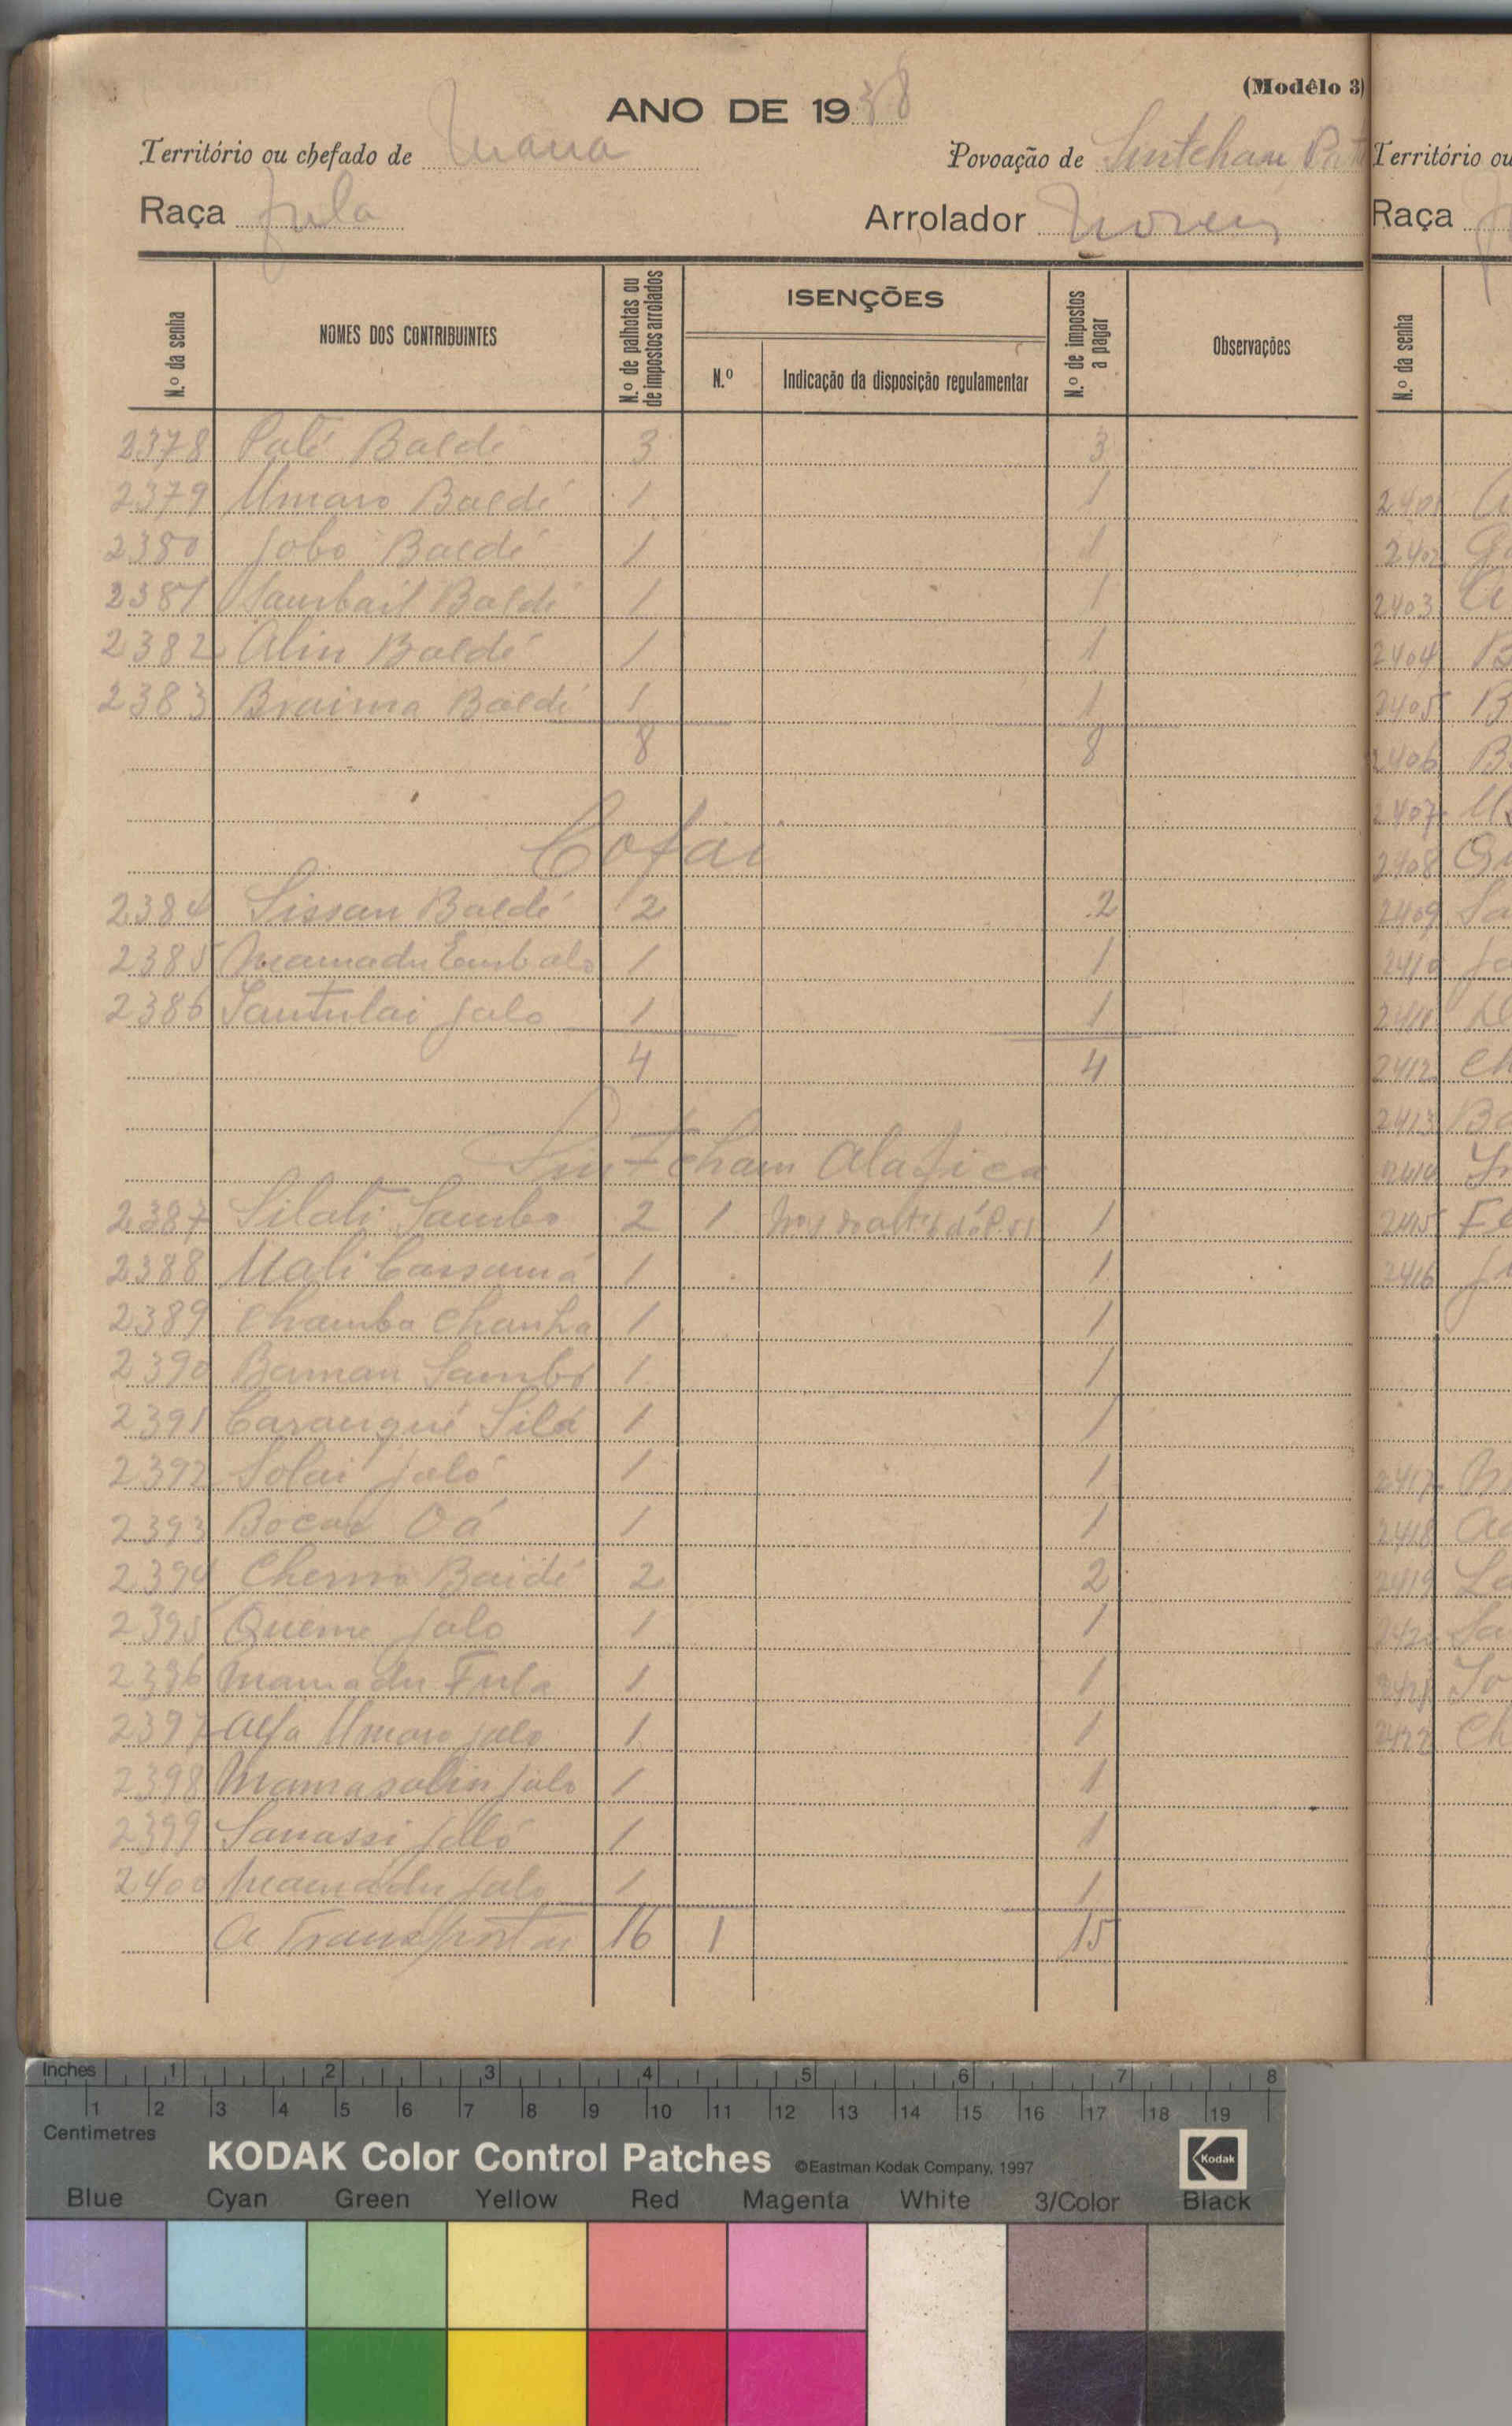 (Modêlo 3)
ANO DE 1938
Território ou chefado de Mana
Povoação de Sintcham Pat
Raça fula
Arrolador
N.º da senha
NOMES DOS CONTRIBUINTES
N.º de palhotas ou de impostos arrolados
ISENÇÕES
N.º
Indicação da disposição regulamentar
N.º de impostos a pagar
Observações
2378 Paté Baldé 3 3
2379 Umaro Baldé 1 1
2380 Jobo Baldé 1 1
2381 Baldé 1 1
2382 Alin Baldé 1 1
2383 Braima Baldé 1 1
8 8
Cofai
2384 Sissan Baldé 2 2
2385 Mamadu Embalo 1 1
2386 Jalo 1 1
4 4
Sintcham
2387 Silati Sambo 2 1 1
2388 Mali Cassamá 1 1
2389 Chamba Chanha 1 1
2390 Baman Sambó 1 1
2391 Carangué Silá 1 1
2392 Solai Jaló 1 1
2393 Bocar Oá 1 1
2394 Cherno Baidé 2 2
2395 Queme Jalo 1 1
2396 Mamadu Fula 1 1
2397 Alfa Umaro Jalo 1 1
2398 Mamasalin Jalo 1 1
2399 Sanassi Jaló 1 1
2400 Mamadu Jalo 1 1
A Transportar 16 1 15
Território ou
Raça
N.º da senha
2401
2402
2403
2404
2405
2406
2407
2408
2409 Sa
2410
2411
2412 Ch
2413 Ba
2414
2415
2416
2417
2418
2419
2420 Sa
2421
2422 Ch
Inches 1 2 3 4 5 6 7 8
1 2 3 4 5 6 7 8 9 10 11 12 13 14 15 16 17 18 19
Centimetres
KODAK Color Control Patches ©Eastman Kodak Company, 1997
Kodak
Blue Cyan Green Yellow Red Magenta White 3/Color Black